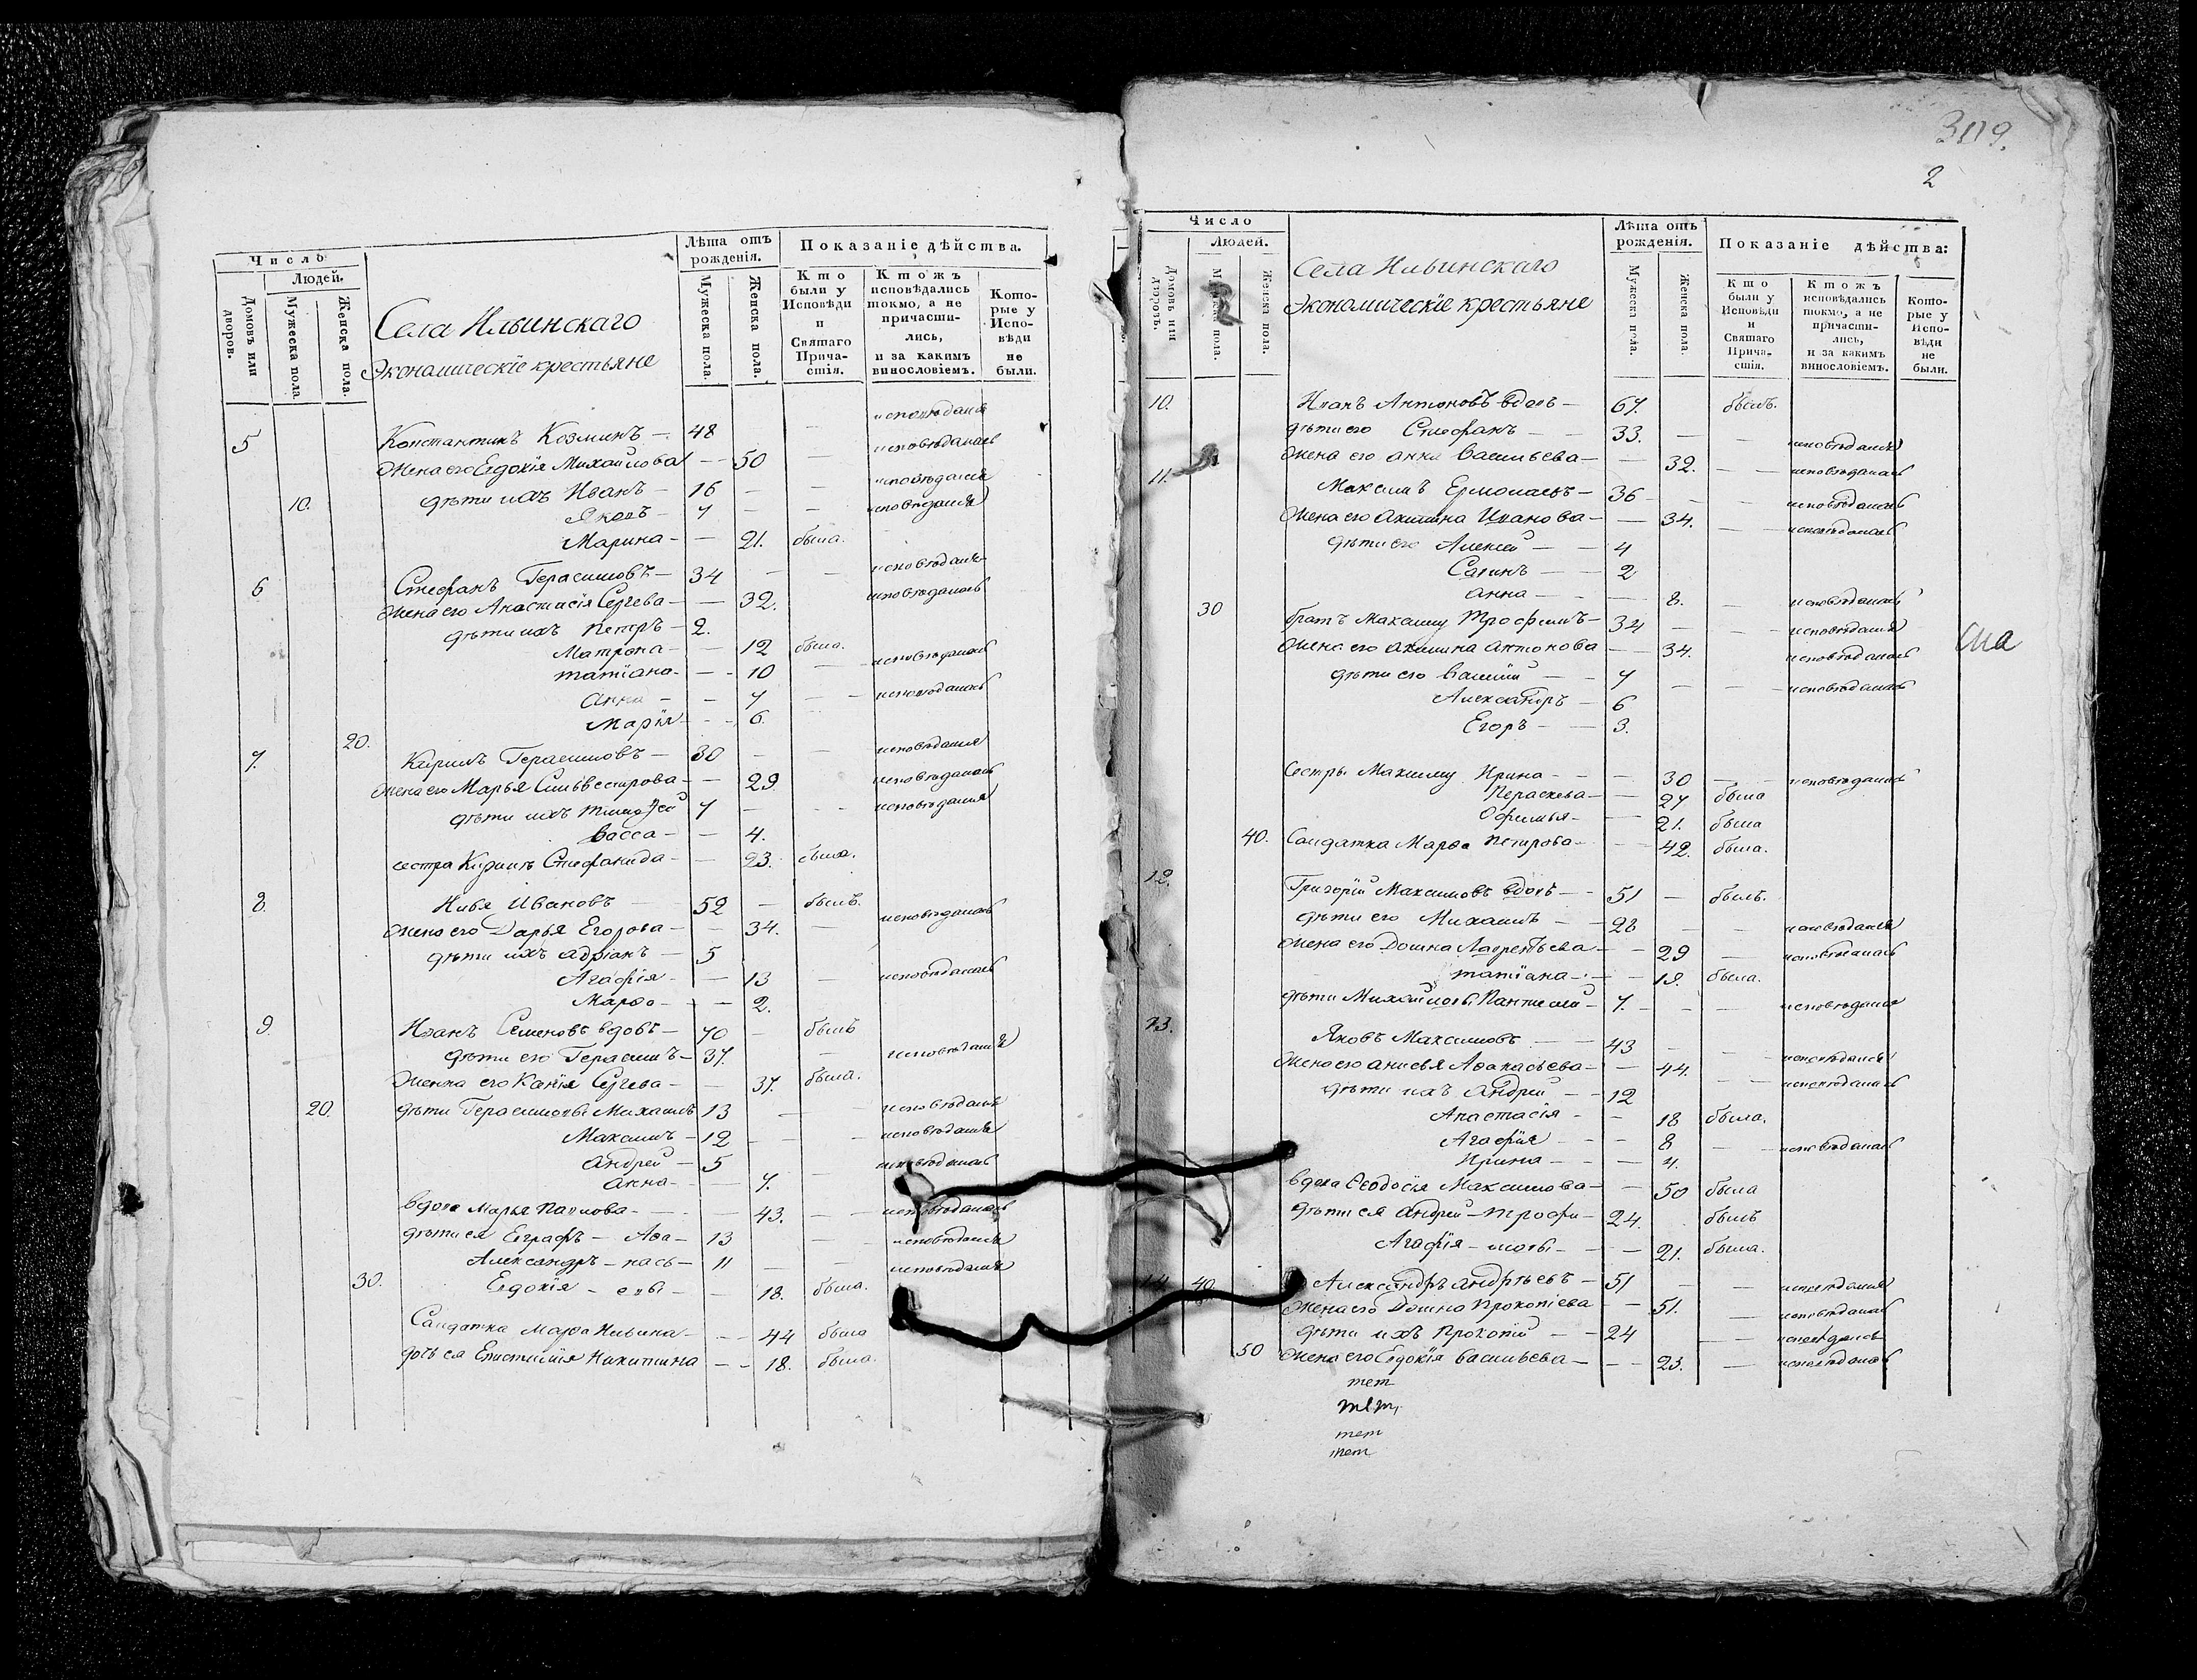 Число
Людей.
Домовъ или дворовъ.
Мужеска пола.
Женска пола.
Села Ильинскаго
Экономическіе крестьяне
Лѣта отъ рожденія.
Мужеска пола.
Женска пола.
Показаніе дѣйства.
Кто были у Исповѣди и Святаго Прича-стія.
Ктожъ исповѣдались токмо, а не причасти-лись, и за какимъ винословіемъ.
Кото-рые у Испо-вѣди не были.
5 Константинъ Козминъ — 48 — исповѣдался
Жена его Евдокія Михайлова — 50 — исповѣдалась
10. дѣти ихъ Иванъ — 16 — исповѣдался
Яковъ — 7 — исповѣдался
Марина — 21. была.
6 Стефанъ Герасимовъ — 34 — исповѣдался
Жена его Анастасія Сергева — 32. исповѣдалась
дѣти ихъ Петръ — 2.
Матрона — 12 была.
Татіана — 10 — исповѣдалась
Анна — 7 — исповѣдалась
Марія — 6.
20.
7. Кирилъ Герасимовъ — 30 — исповѣдался
Жена его Марья Сильвестрова — 29 исповѣдалась
дѣти ихъ Тимоѳей 7 — исповѣдался
Васса — 4.
сестра Кирилъ Стефанида — 23. была.
8. Илья Ивановъ — 52 — былъ.
Жена его Дарья Егорова — 34. — исповѣдалась
дѣти ихъ Адріанъ — 5
Агафія — 13 — исповѣдалась
Марѳа — 2.
9. Иванъ Семеновъ вдовъ — 70 — былъ
дѣти его Герасимъ — 37. — исповѣдался
Женна его Сергева — 37. была.
20. дѣти Герасимовы Михаилъ 13 — исповѣдался
Максимъ — 12 — исповѣдался
Андрей — 5
Анна — 7. исповѣдалась
вдова Марья Павлова — 43. — исповѣдалась
дѣти ея Евграфъ — Аѳа — 13 — исповѣдался
Александръ — нась — 11 — исповѣдался
30. Евдокія — евы — 18. была.
Салдатка Марѳа Ильина — 44 была
дочь ея Епистимія Никитина — 18. была.
309.
2
Число
Людей.
Домовъ или дворовъ.
Мужеска пола.
Женска пола.
Села Ильинскаго
Экономическіе крестьяне
Лѣта отъ рожденія.
Мужеска пола.
Женска пола.
Показаніе дѣйства:
Кто были у Исповѣди и Святаго Прича-стія.
Ктожъ исповѣдались токмо, а не причасти-лись, и за какимъ винословіемъ.
Кото-рые у Испо-вѣди не были.
10. Иванъ Антоновъ вдовъ — 67. былъ.
дѣти его Стефанъ — 33. — исповѣдался
Жена его Анна Васильева — 32. — исповѣдалась
11. Максимъ Ермолаевъ — 36 — исповѣдался
Жена его Акилина Иванова — 34. — исповѣдалась
дѣти его Алексей — 4
Савинъ — 2
Анна — 8. — исповѣдалась
30 братъ Максиму Трофимъ — 34 — исповѣдался
Жена его Акилина Антонова — 34. — исповѣдалась
дѣти его Василій — 7 — исповѣдался
Александръ — 6
Егоръ — 3.
сестры Максиму Ирина — 30 — исповѣдалась
Пераскева — 27 была
Офимья — 21. была
40. Салдатка Марѳа Петрова — 42. была.
12. Григорій Максимовъ вдовъ — 51 — былъ.
дѣти его Михаилъ — 28 — исповѣдался
Жена его Домна Лаврентьева — 29 — исповѣдалась
Татіана — 19. была.
дѣти Михайловы Пантелей — 7. — исповѣдался
13. Яковъ Максимовъ — 43 — исповѣдался
Жена его Анисья Аѳанасьева — 44. — исповѣдалась
дѣти ихъ Андрей — 12
Анастасія — 18 была.
Агафія — 8 — исповѣдалась
Ирина — 4.
вдова Ѳеодосія Максимова — 50 была
дѣти ея Андрей — Трофи — 24. былъ
Агафія — мовы — 21. была.
14 40. Александръ Андрѣевъ — 51 — исповѣдался
Жена его Домна Прокопіева — 51. — исповѣдалась
дѣти ихъ Прокопій — 24 — исповѣдался
50 Жена его Евдокія Васильева — 23. — исповѣдалась
тет
тет
тет